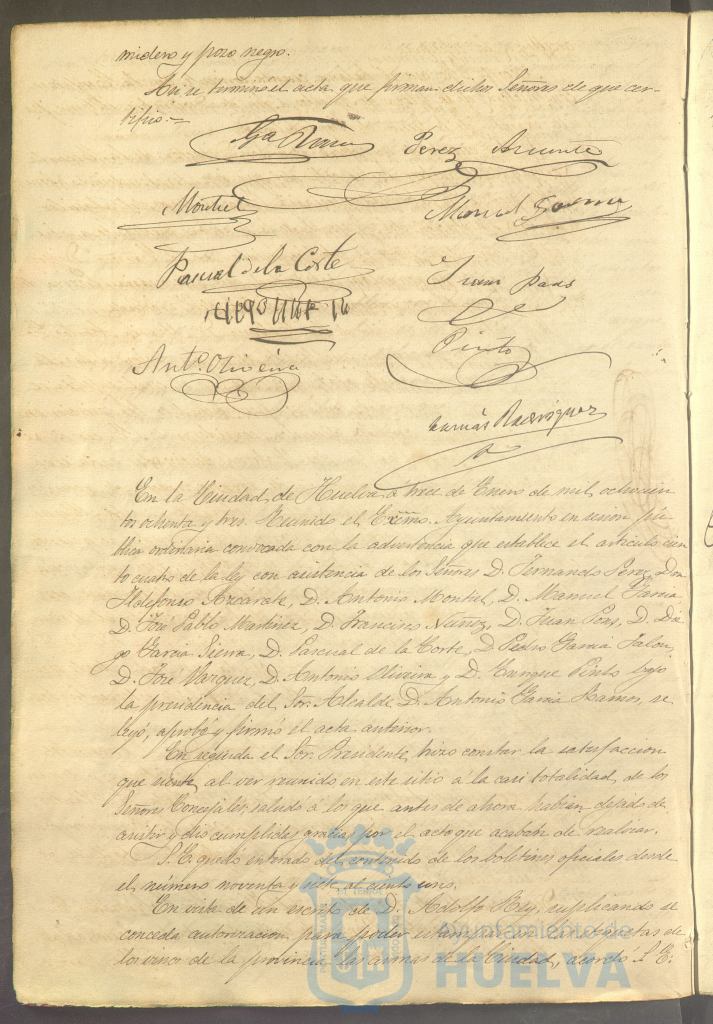 midero y pozo negro.
Asi se termino el acta que firman dichos Señores de que cer-
tifico.=
Ga Ramos Perez Azcarate
Montiel
Manuel Garcia
Pascual de la Corte
Juan Poas
Antº Oliveira
Pinto
Rodriguez
En la Ciudad de Huelva a trece de Enero de mil ochocien
tos ochenta y tres. Reunido el Excmo. Ayuntamiento en sesion pú
blica ordinaria convocada con la advertencia que establece el articulo cien
to cuatro de la ley con asistencia de los Señores D. Fernando Perez, Don
Ildefonso Azcárate, D. Antonio Montiel, D. Manuel Garcia
D. José Pablo Martinez, D. Francisco Nuñez, D. Juan Poas, D. Die
go Garcia Sierra, D. Pascual de la Corte, D. Pedro Garcia Jalon,
D. José Vazquez, D. Antonio Oliveira y D. Enrique Pinto bajo
la presidencia del Sor. Alcalde D. Antonio Garcia Ramos, se
leyó, aprobó y firmó el acta anterior.
En seguida el Sor. Presidente, hizo constar la satisfaccion
que siente al ver reunido en este sitio á la casi totalidad, de los
Señores Concejales, saludó á los que antes de ahora habian dejado de
asistir y dio cumplidas gracias por el acto que acaban de realizar.
S. E. quedó enterado del contenido de los boletines oficiales desde
el número noventa y siete al ciento uno.
En vista de un escrito de D. Adolfo Rey, suplicando se
conceda autorizacion para poder estampar en las etiquetas de
los vinos de la provincia las armas de la Ciudad, acordó S. E.
Ayuntamiento de
HUELVA